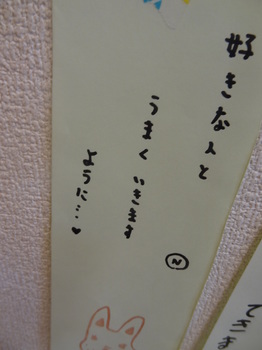 好きな人と
うまくいきます
ように…♥
N